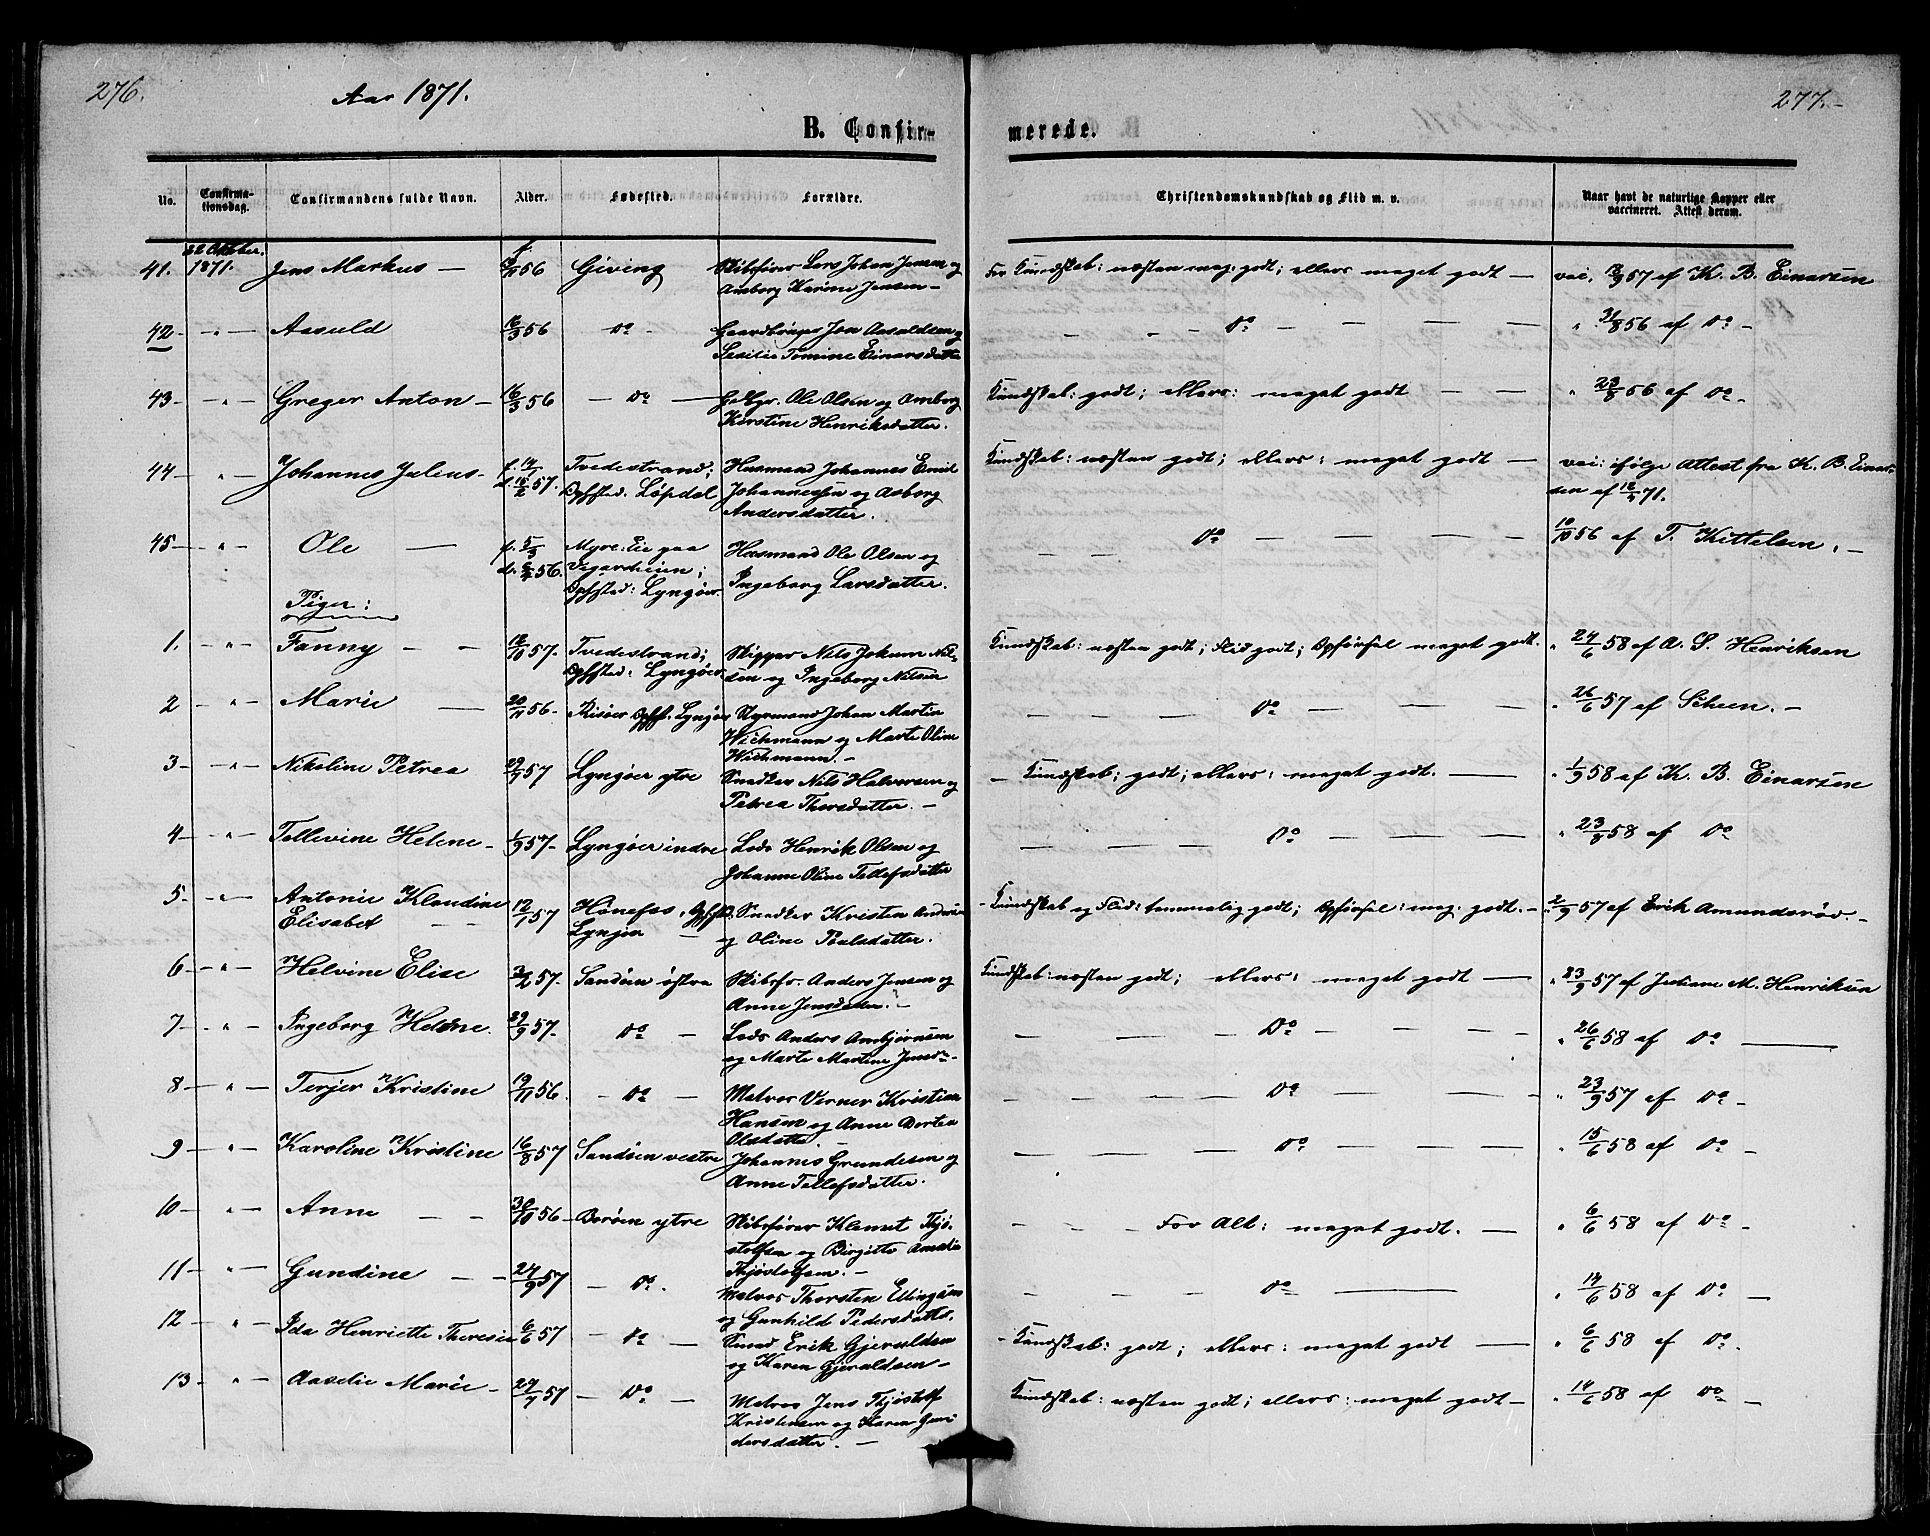 276.
Aar 1871.
277.
B. Confirmerede.
No. Confirmationsdag. Confirmandens fulde Navn. Alder. Fødested. Forældre. Christendomskundskab og Flid m. v. Naar havt de naturlige Kopper eller vaccineret. Attest derom.
22 Oktober.
41. 1871. Jens Markus — 56 Giving Skibsfører Lars Johan Jensen og For Kundskab: næsten meg. godt; ellers meget godt — vac. 57 af K. B. Einarsen
Amborg Karine Jensen —
42 — " — Aasuld 16/3 56 Do - Gaardbruger Jon Aasuldsen og — Do — " 31/8 56 af Do -
Tomine Einarsdatter
43 - " - Greger Anton — 16/3 56 — Do — Gdbgr. Ole Olsen og Amborg Kundskab: godt; ellers: meget godt — " 23/8 56 af Do -
Kirstine Henriksdatter.
44 - " - Johannes Julius - f. 14/1 Tvedestrand; Husmand Johannes Emil Kundskab: næsten godt; ellers: meget godt — vac: ifølge Attest fra K. B. Einar-
d. 15/2 57. Opfsted. Løpdal Johannesen og Asborg sen af 71.
Andersdatter.
45 — " - Ole — f. 5/3 Myre: Eie paa Husmand Ole Olsen og — Do — 10/10 56 af T. Kittelsen. —
56. Vegardheien; Ingeborg Larsdatter.
Opfsted: Lyngøer.
Piger:
1. — " — Fanny — 12/10 57. Tvedestrand; Skipper Nils Jokum Niel- Kundskab: næsten godt; Flid godt; Opførsel meget godt. " 24/6 58 af A. S. Henriksen
Opfsted: Lyngøer sen og Ingeborg Nilsen
2 — " — Marie — 20/11 56 - Risøer Opff. Lyngøer Styrmand Johan Martin — Do — " 26/6 57 af Scheen. —
Wichmann og Marte Oline
Wichmann. —
3 — " — Nikoline Petrea 29/9 57 Lyngøer ytre Snedker Nils Halvorsen og — Kundskab: godt; ellers: meget godt. — " 1/9 58 af K. B. Einarsen
Petrea Thorsdatter. —
4 — " — Tellevine Helene - 1/9 57 - Lyngøer indre Lods Henrik Olsen og — Do — " 23/8 58 af Do
Johanne Oline Tellefsdatter
5 - " - Antonie Klaudine 12/7 57 Hønefos, Opfsd. Snedker Kristen - Kundskab og Flid: temmelig godt; Opførsel: meg. godt. - 2/9 57 af Erik Amundsrød. —
Elisabet — Lyngør — og Oline Poulsdatter.
6 - " - Helvine Elise 57 - Sandøen østre Skibsfr. Anders Jensen og Kundskab: næsten godt; ellers: meget godt — " 23/9 57 af Juliane M. Henriksen
Anne Jensdatter. —
7 - " - Ingeborg Helene. 29/9 57 - Do — Lods Anders Ambjørnsen — Do — " 26/6 58 af Do —
og Marte Martine Jensdr. -
8 — " — Terjer Kristine 19/11 56. - Do — Matros Verner Kristian — Do — " 23/9 57 af Do -
Hansen og Anne Dortea
Olsdatter. —
9 - " - Karoline Kristine 16/8 57 Sandøen vestre Johannes Grundesen og — Do — " 15/6 58 af Do —
Anne Tellefsdatter.
10 - " - Anne — 30/10 56 - Borøen ytre Skibsfører Klemet Thjø- — For Alt: meget godt. — " 6/6 58 af Do -
stolfsen og Birgitte Amalie
Thjøstolfsen. —
11 - " - Gundine — 24/9 57 — Do. Matros Thorsten Ellingsen — Do — " 14/6 58 af Do —
og Gunhild Pedersdatter.
12 - " - Ida Henriette Theresie 6/6 57 — Do — Smed Erik Gjeruldsen - Kundskab: godt; ellers: meget godt — " 6/6 58 af Do -
og Karen Gjeruldsen —
13 - " - Aaselie Marie - 57 — Do — Matros Jens Thjøstolf Kundskab: næsten godt; ellers: meget godt — " 14/6 58 af Do —
Kristensen og Karen Gun-
dersdatter. —